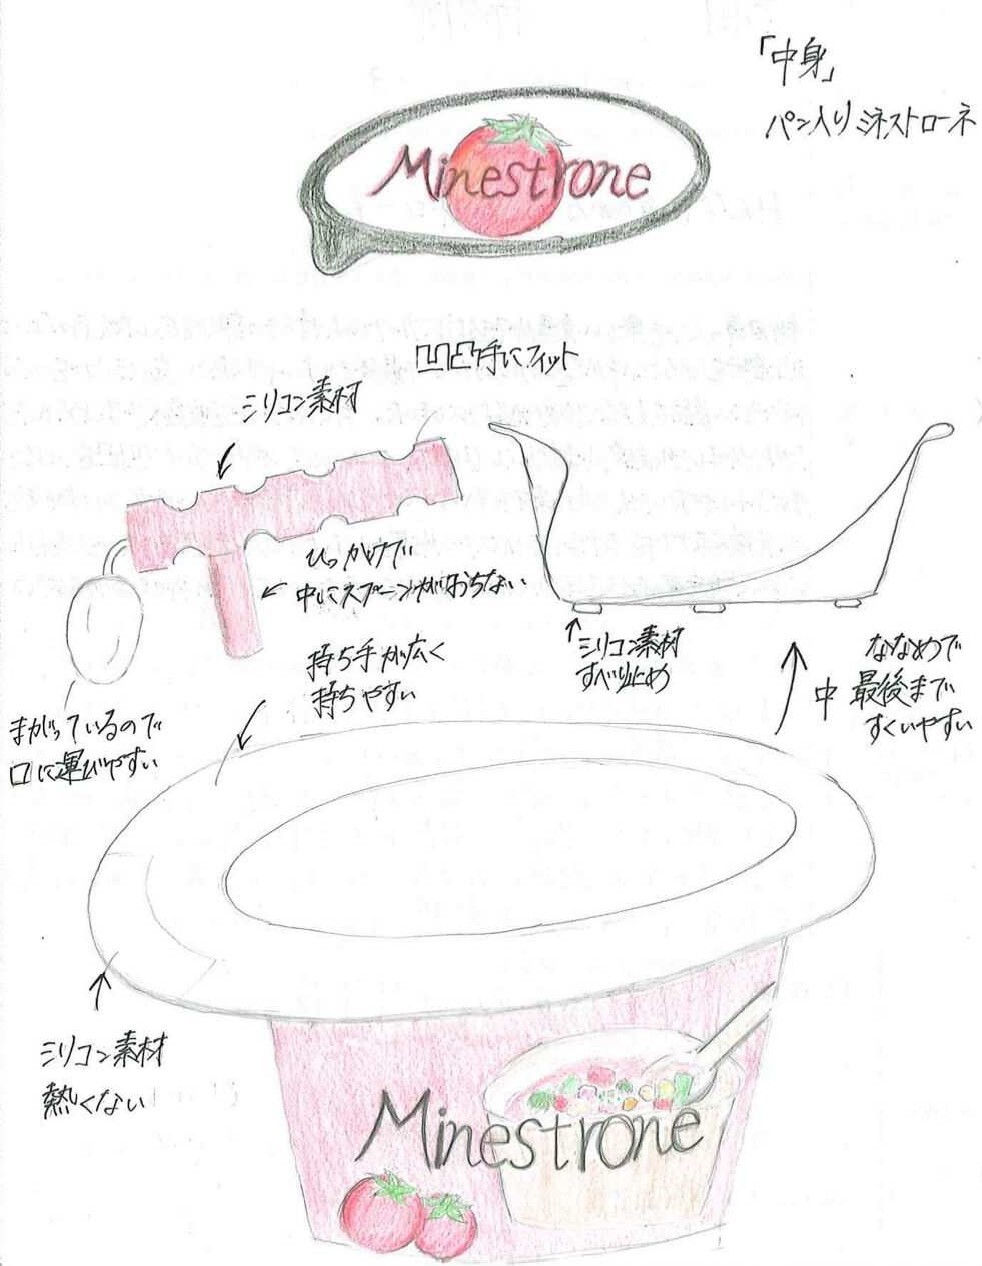 「中身」
パン入りミネストローネ
Minestrone
凹凸手にフィット
ミリコン素材
ひっかけで
中にスプーンがおちない
持ち手が広く
持ちやすい
ミリコン素材
すべり止め
まがっているので
口に運びやすい
中
ななめで
最後まで
すくいやすい
ミリコン素材
熱くない
Minestrone